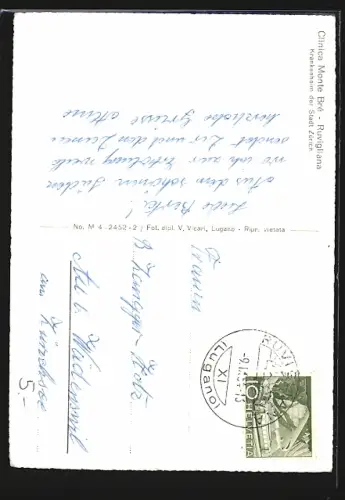 Clinica Monte Brè - Ruvigliana
Krankenheim der Stadt Zürich
Liebe Berta!
Aus dem schönen Süden
wo ich zur Erholung weile
sendet Dir und den Deinen
herzliche Grüsse
No. M 4 - 2452 - 2 / Fot. dipl. V. Vicari, Lugano - Ripr. vietata
Frau
Au b. Wädenswil
am Zürichsee
5.-
RUVI
(Lugano)
XI
HELVETIA
10